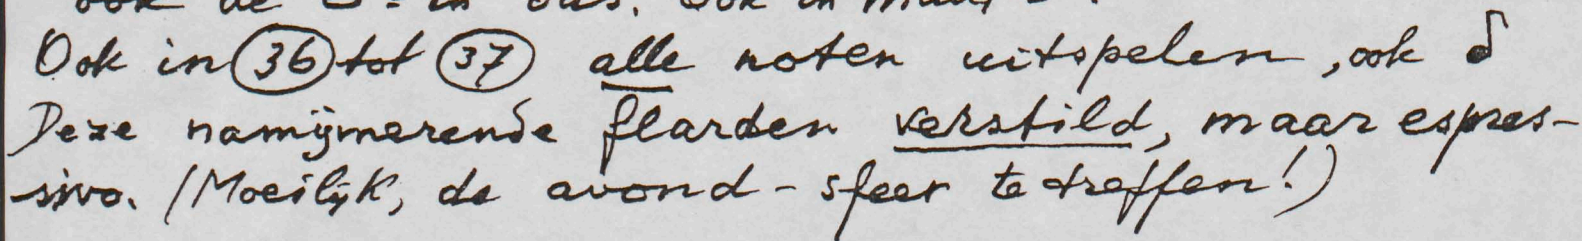 Ook in 36 tot 37 alle noten uitspelen, ook
Deze namijmerende flarden verstild, maar espres-
sivo. (Moeilijk, de avond-sfeer te treffen!)